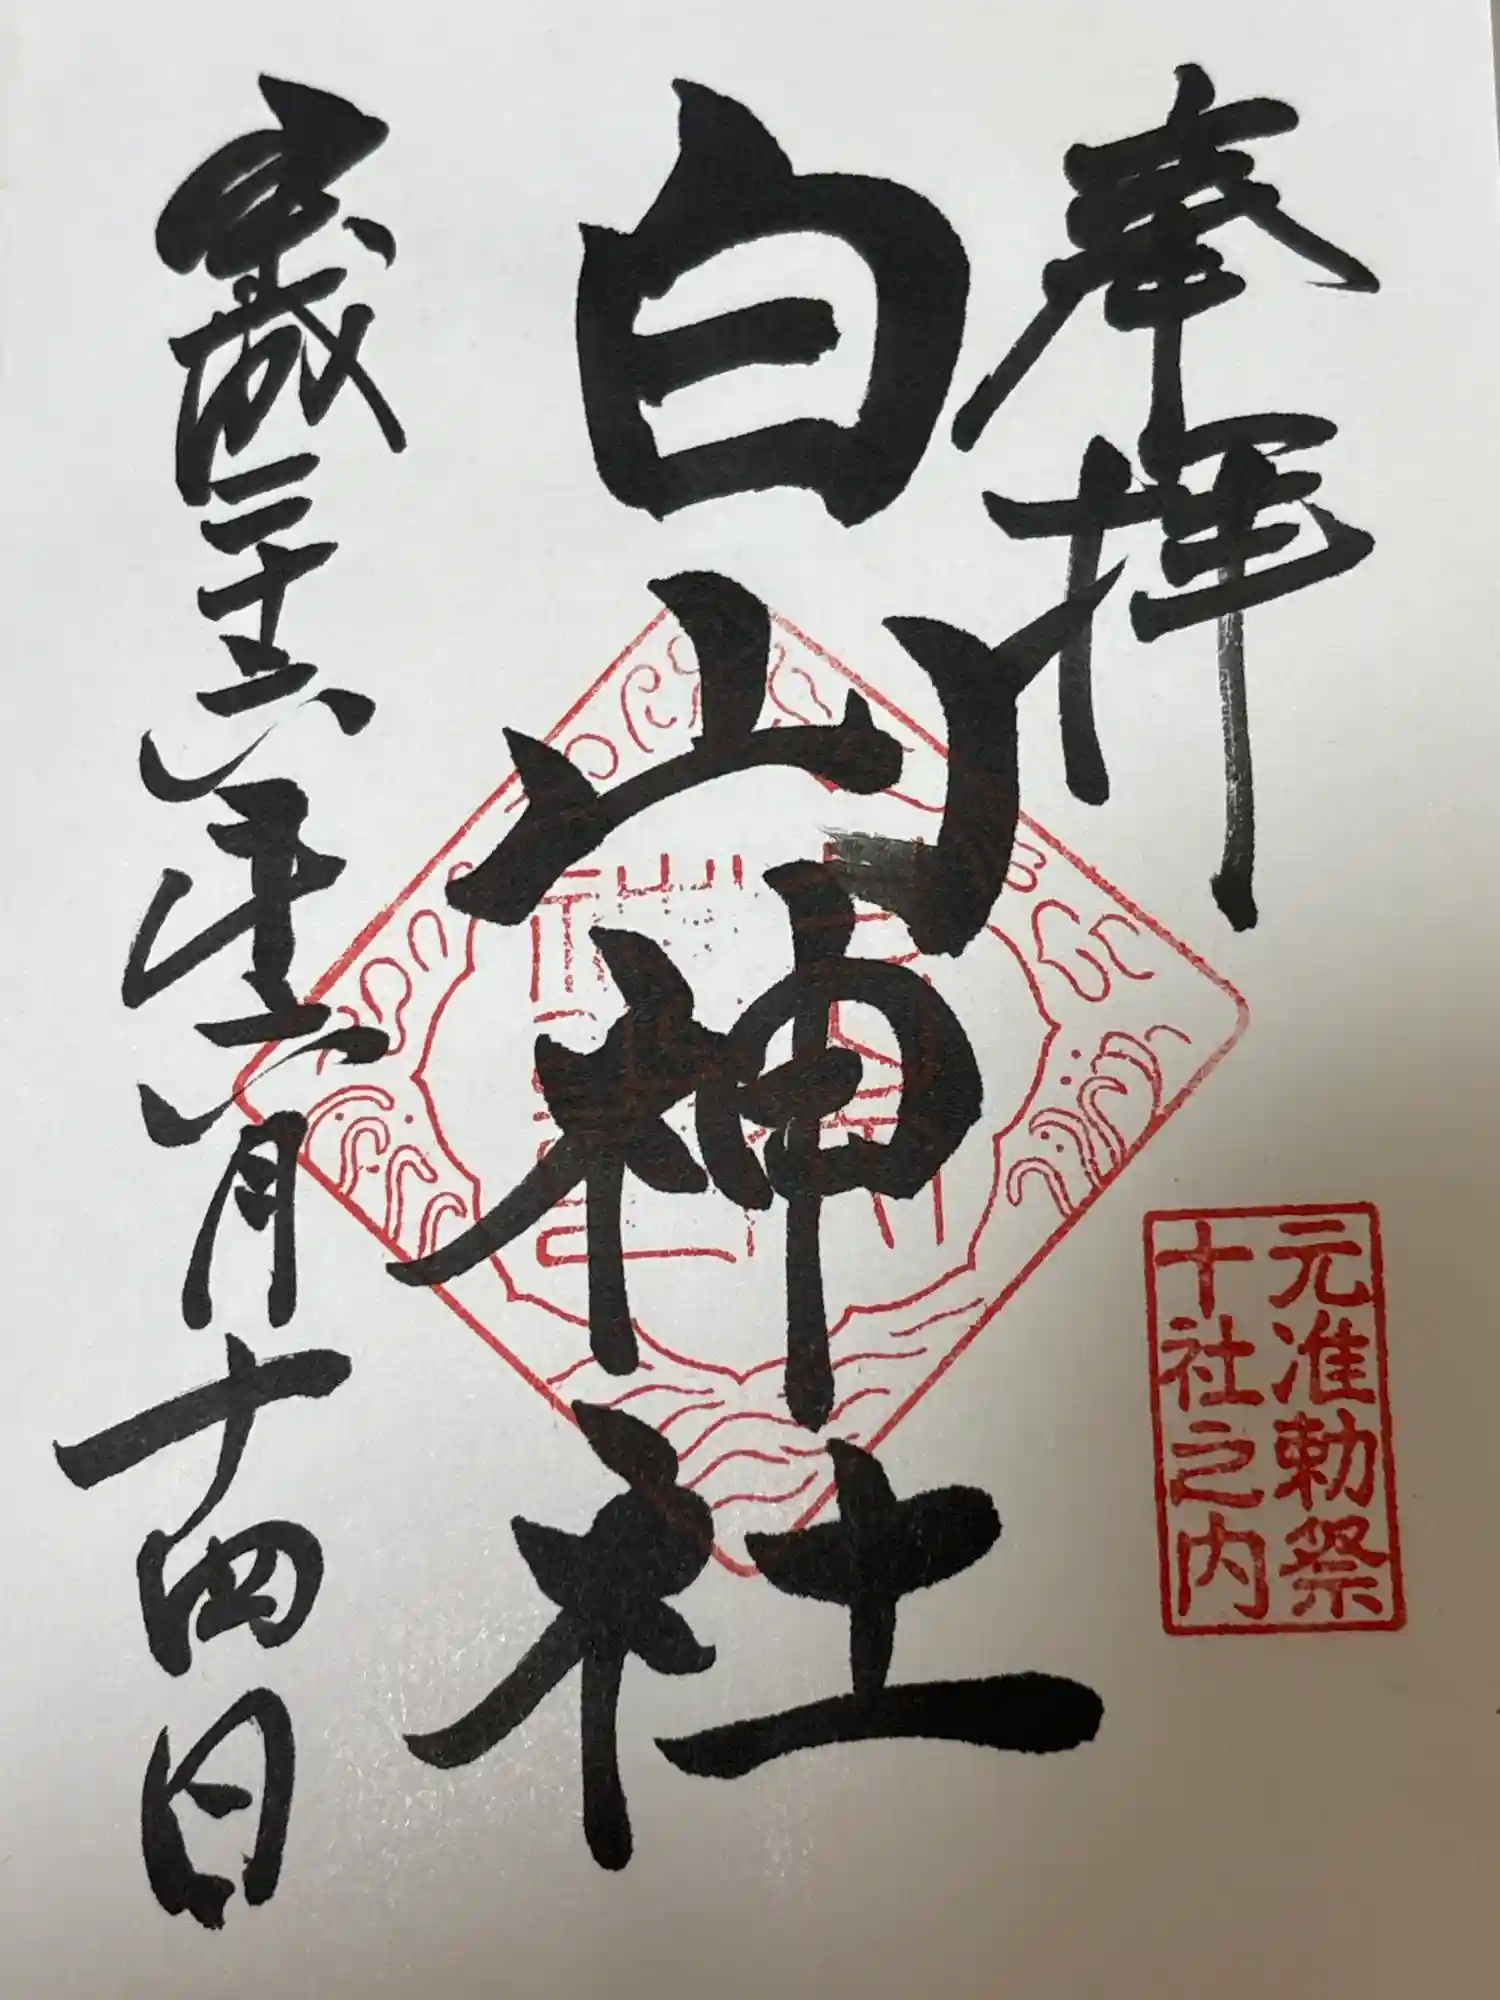 奉拝
元准勅祭
十社之内
白山神社
平成二十六年六月十四日